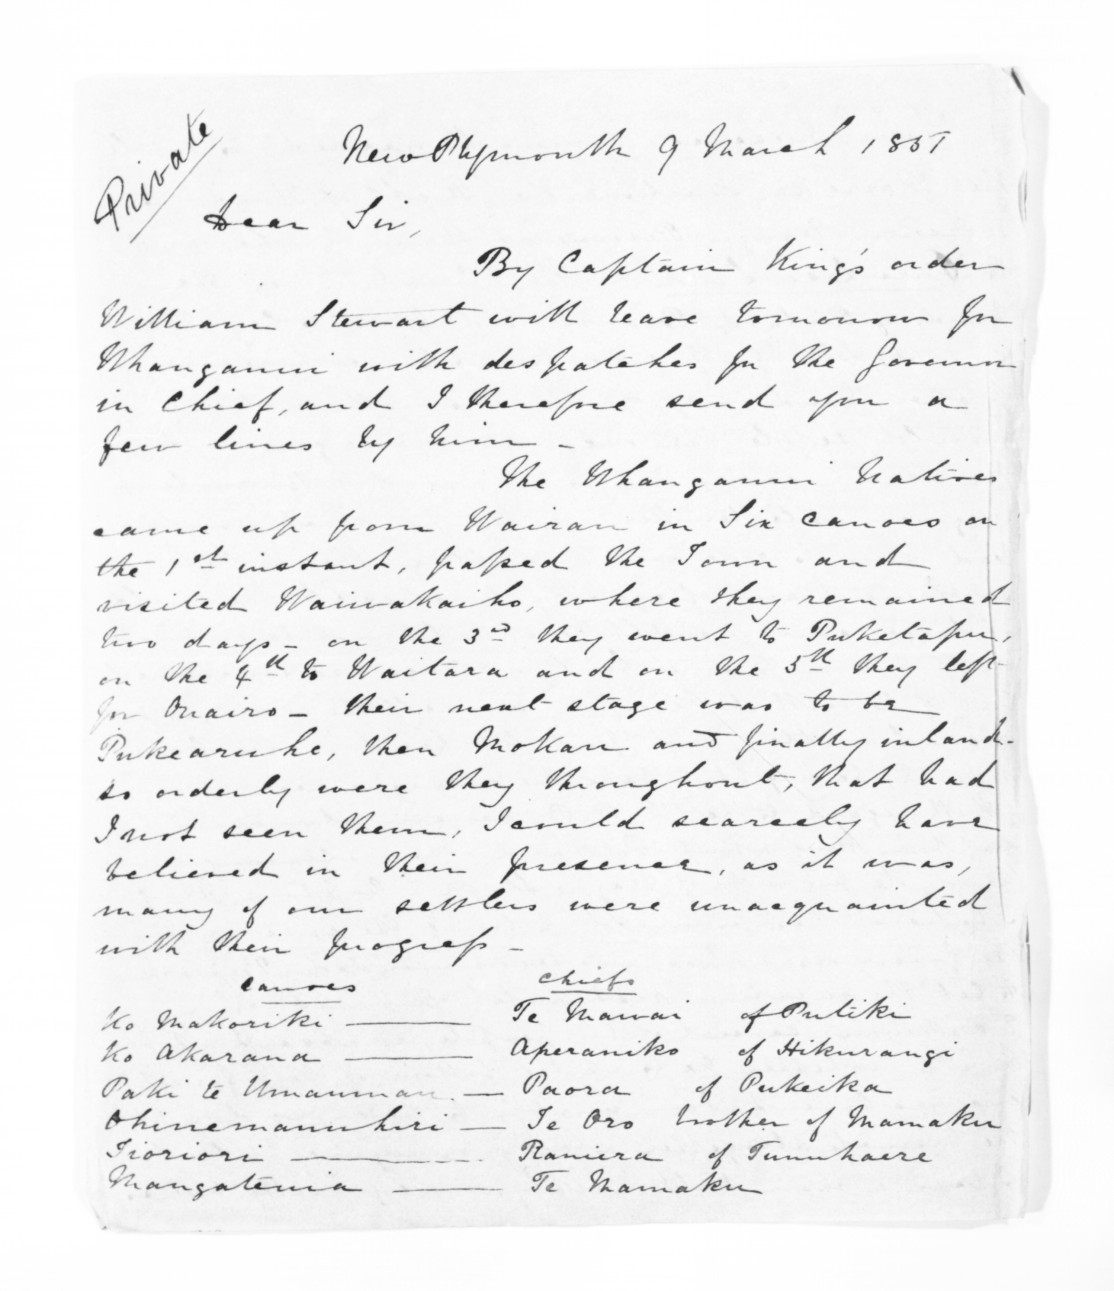 Private
New Plymouth 9 March 1851
Dear Sir,
By Captain King's order
William Stewart will leave tomorrow for
Whanganui with despatches for the Governor
in Chief, and I therefore send you a
few lines by him -
The Whanganui Natives
came up from Wairau in Six canoes on
the 1st instant, passed the Town and
visited Waiwakaiho, where they remained
two days - on the 3rd they went to Puketapu,
on the 4th to Waitara and on the 5th they left
for Onairo - their next stage was to be
Pukearuhe, then Mokau and finally inland -
so orderly were they throughout, that had
I not seen them, I could scarcely have
believed in their presence, as it was,
many of our settlers were unacquainted
with their progress -
Canoes Chiefs
Ko Makoriki — Te Mawai of Putiki
Ko Akarana — Aperaniko of Hikurangi
Paki te Umaumau — Paora of Pukeika
Ohinemanuhiri — Te Oro brother of Mamaku
Tioriori — Raniera of Tunuhaere
Mangatenia — Te Mamaku